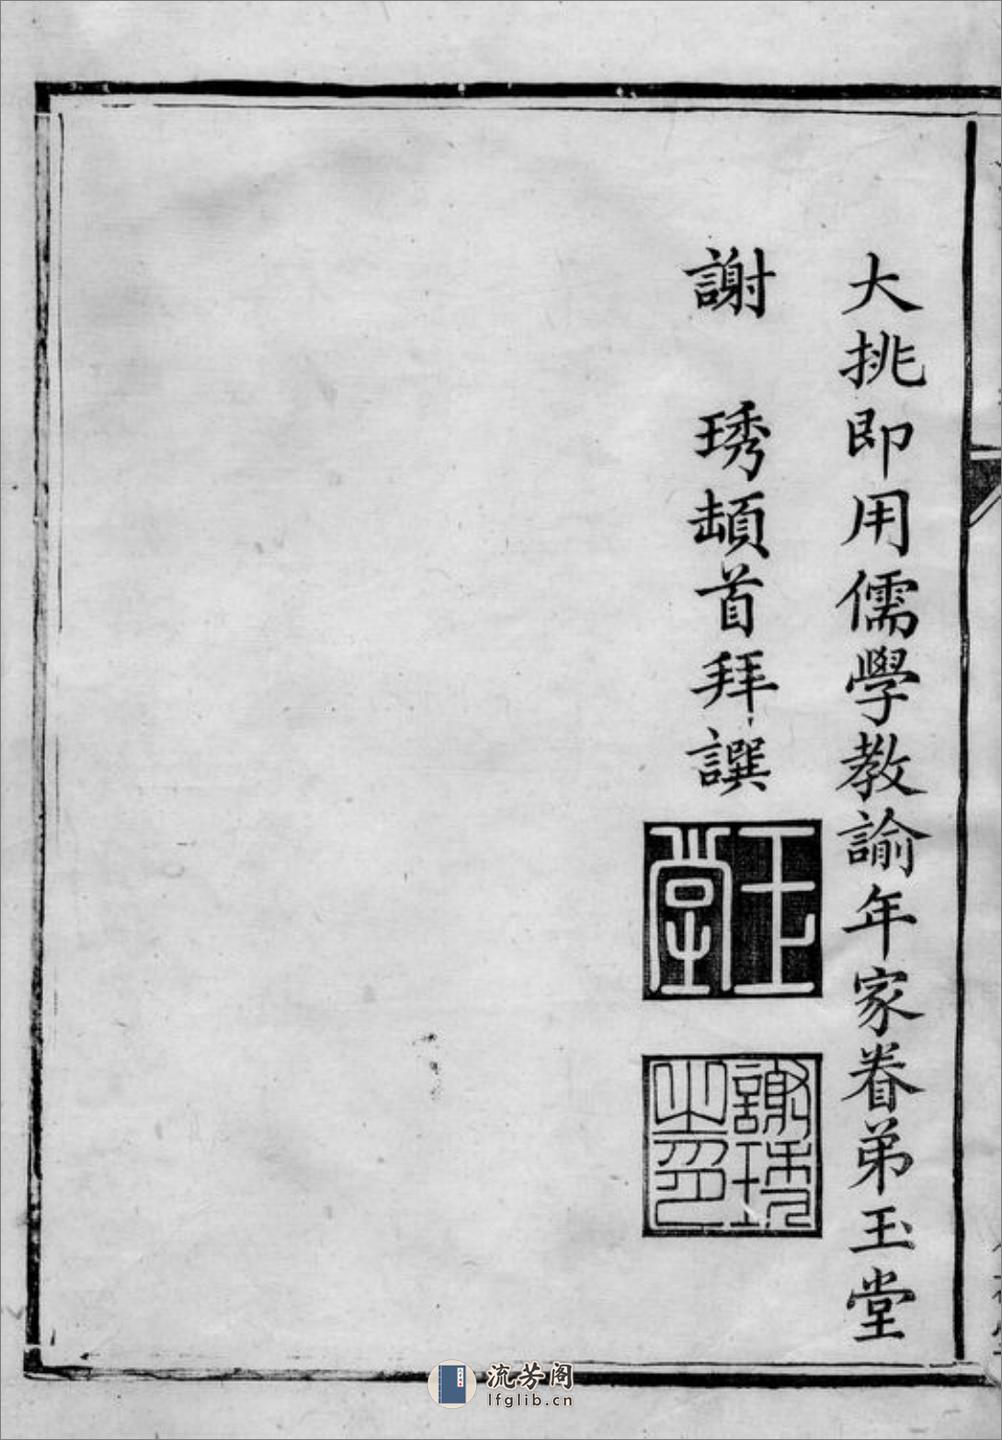 大挑即用儒學教諭年家眷弟玉堂
謝 琇頓首拜譔
玉堂
謝琇之印
流芳阁
lfglib.cn